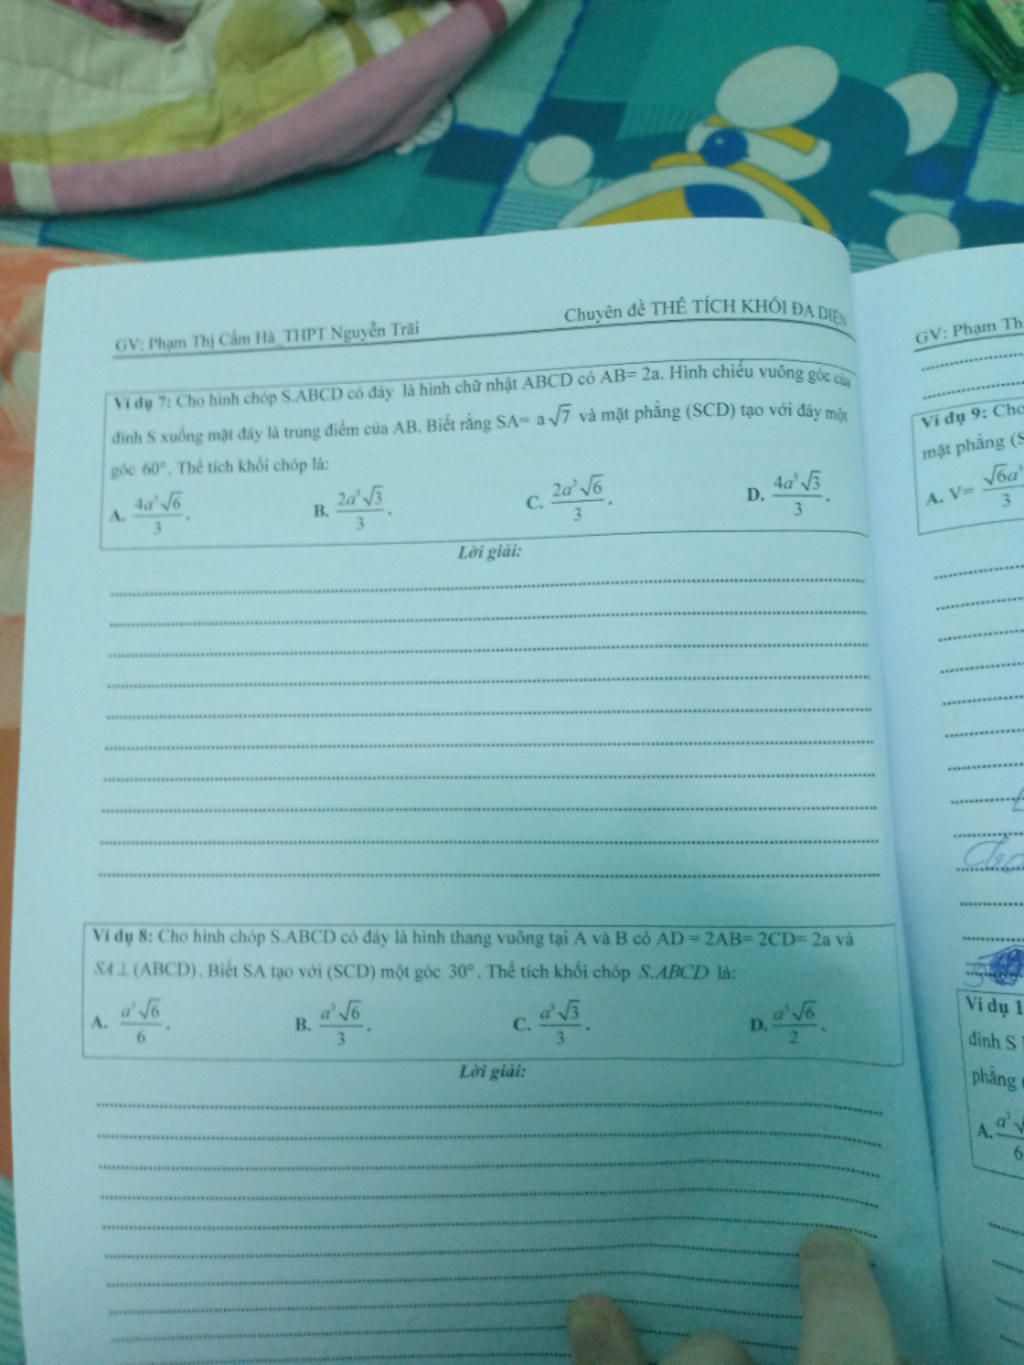 GV: Phạm Thị Cẩm Hà_THPT Nguyễn Trãi
Chuyên đề THỂ TÍCH KHỐI ĐA DIỆN
Ví dụ 7: Cho hình chóp S.ABCD có đáy là hình chữ nhật ABCD có AB= 2a. Hình chiếu vuông góc của
đỉnh S xuống mặt đáy là trung điểm của AB. Biết rằng SA= a√7 và mặt phẳng (SCD) tạo với đáy một
góc 60°. Thể tích khối chóp là:
A. 4a³√6/3. B. 2a³√3/3. C. 2a³√6/3. D. 4a³√3/3.
Lời giải:
Ví dụ 8: Cho hình chóp S.ABCD có đáy là hình thang vuông tại A và B có AD = 2AB= 2CD= 2a và
SA ⊥ (ABCD). Biết SA tạo với (SCD) một góc 30°. Thể tích khối chóp S.ABCD là:
A. a³√6/6. B. a³√6/3. C. a³√3/3. D. a³√6/2.
Lời giải:
GV: Phạm Th
Ví dụ 9: Cho
mặt phẳng (S
A. V= √6a³/3
Ví dụ 1
đỉnh S
phẳng
A. a³√/6